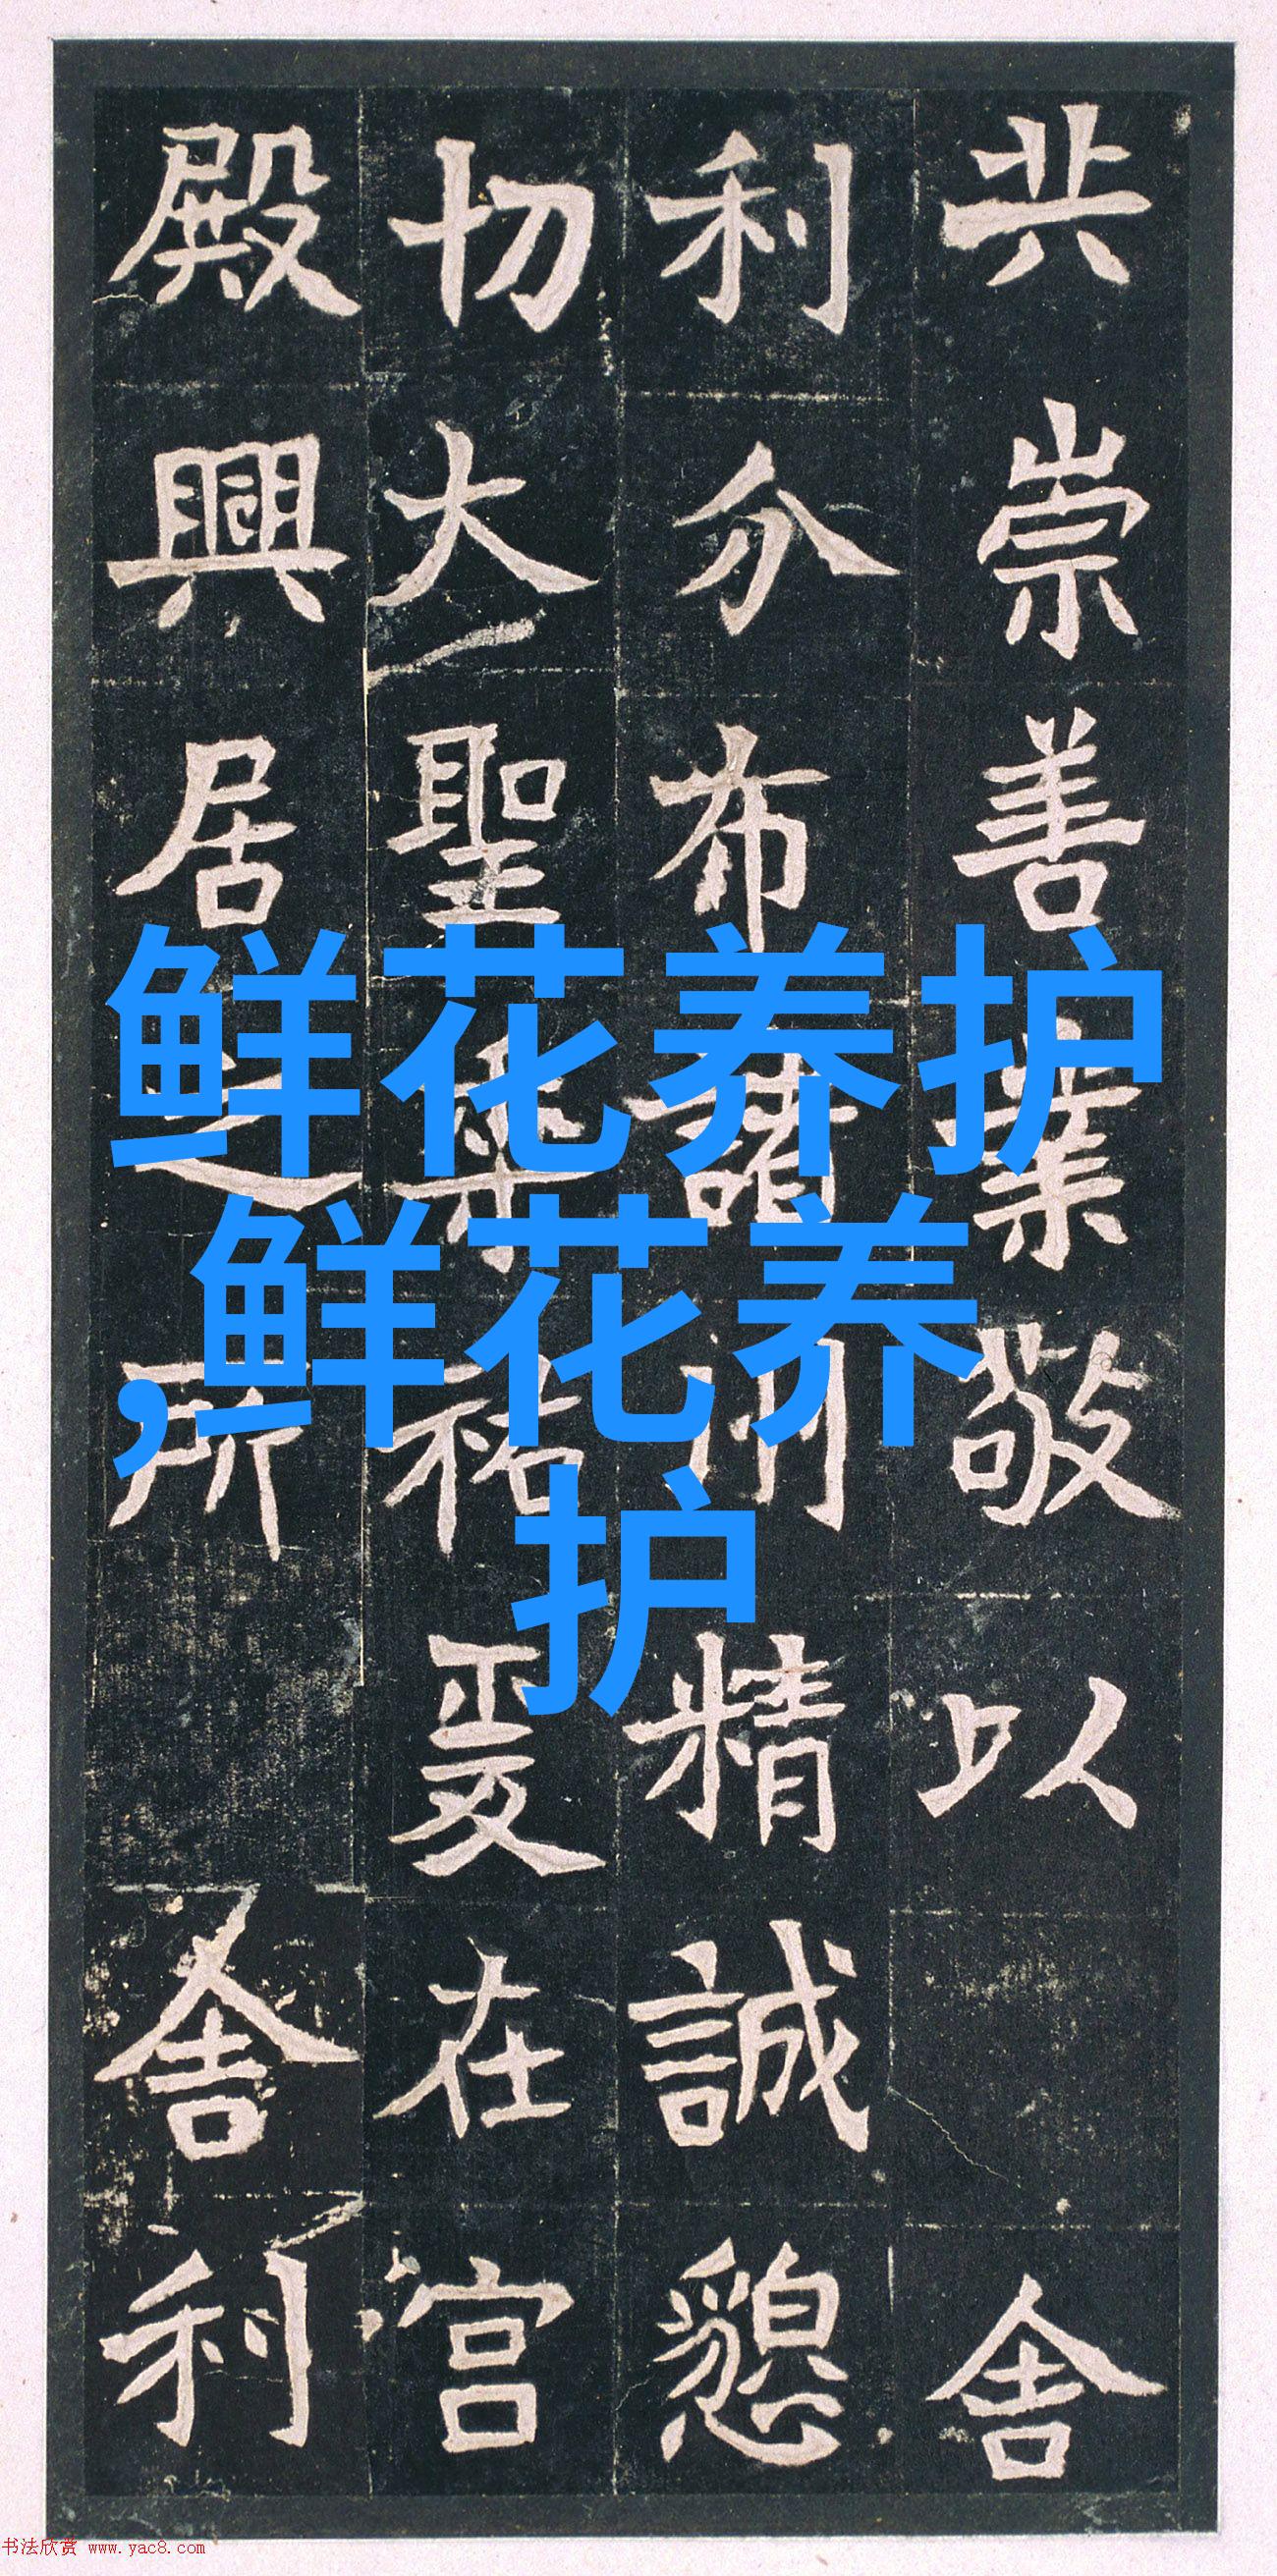 共崇善業敬以舍
利分布諸州精誠懇
切大聖垂祐爰在宫
殿興居之所舍利
鲜花养护
,鲜花养
护
书法欣赏 www.yac8.com